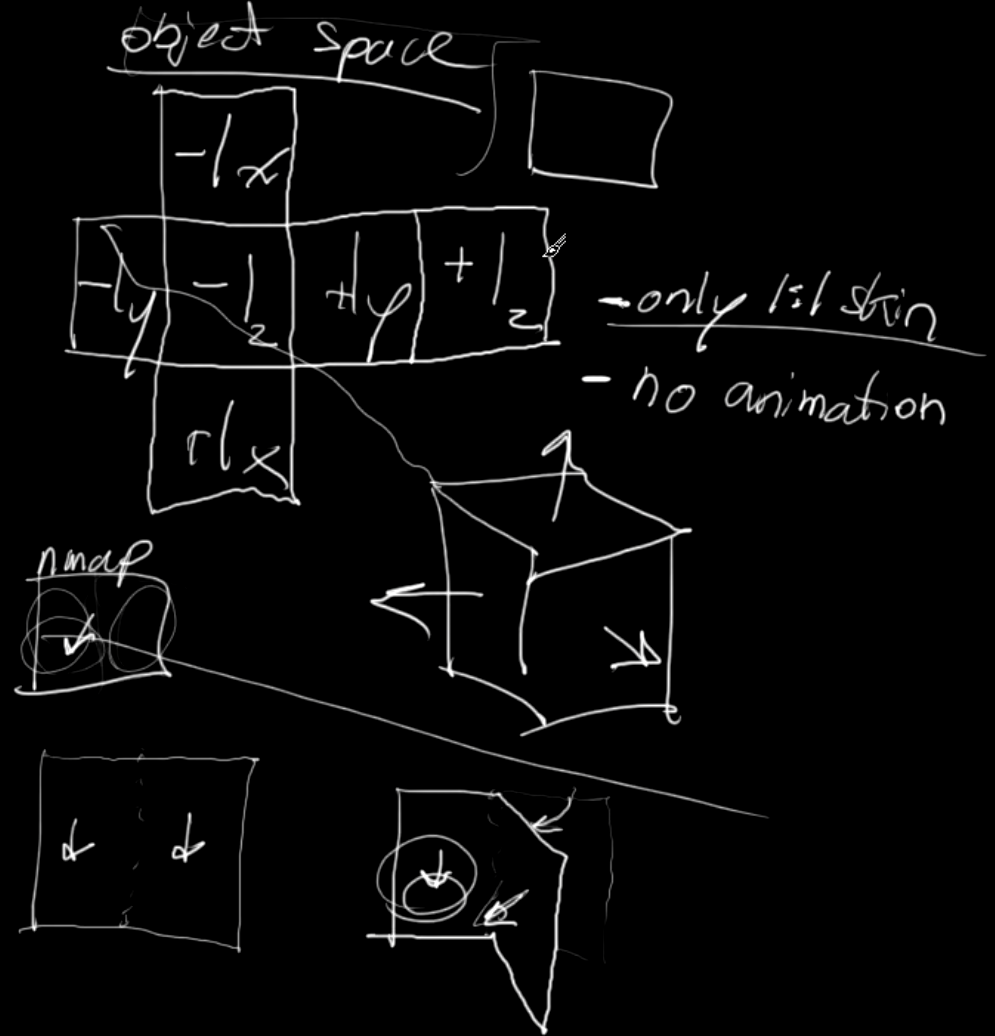 object space
-1x
-1y -1z +1y +1z
- only 1:1 skin
- no animation
+1x
nmap